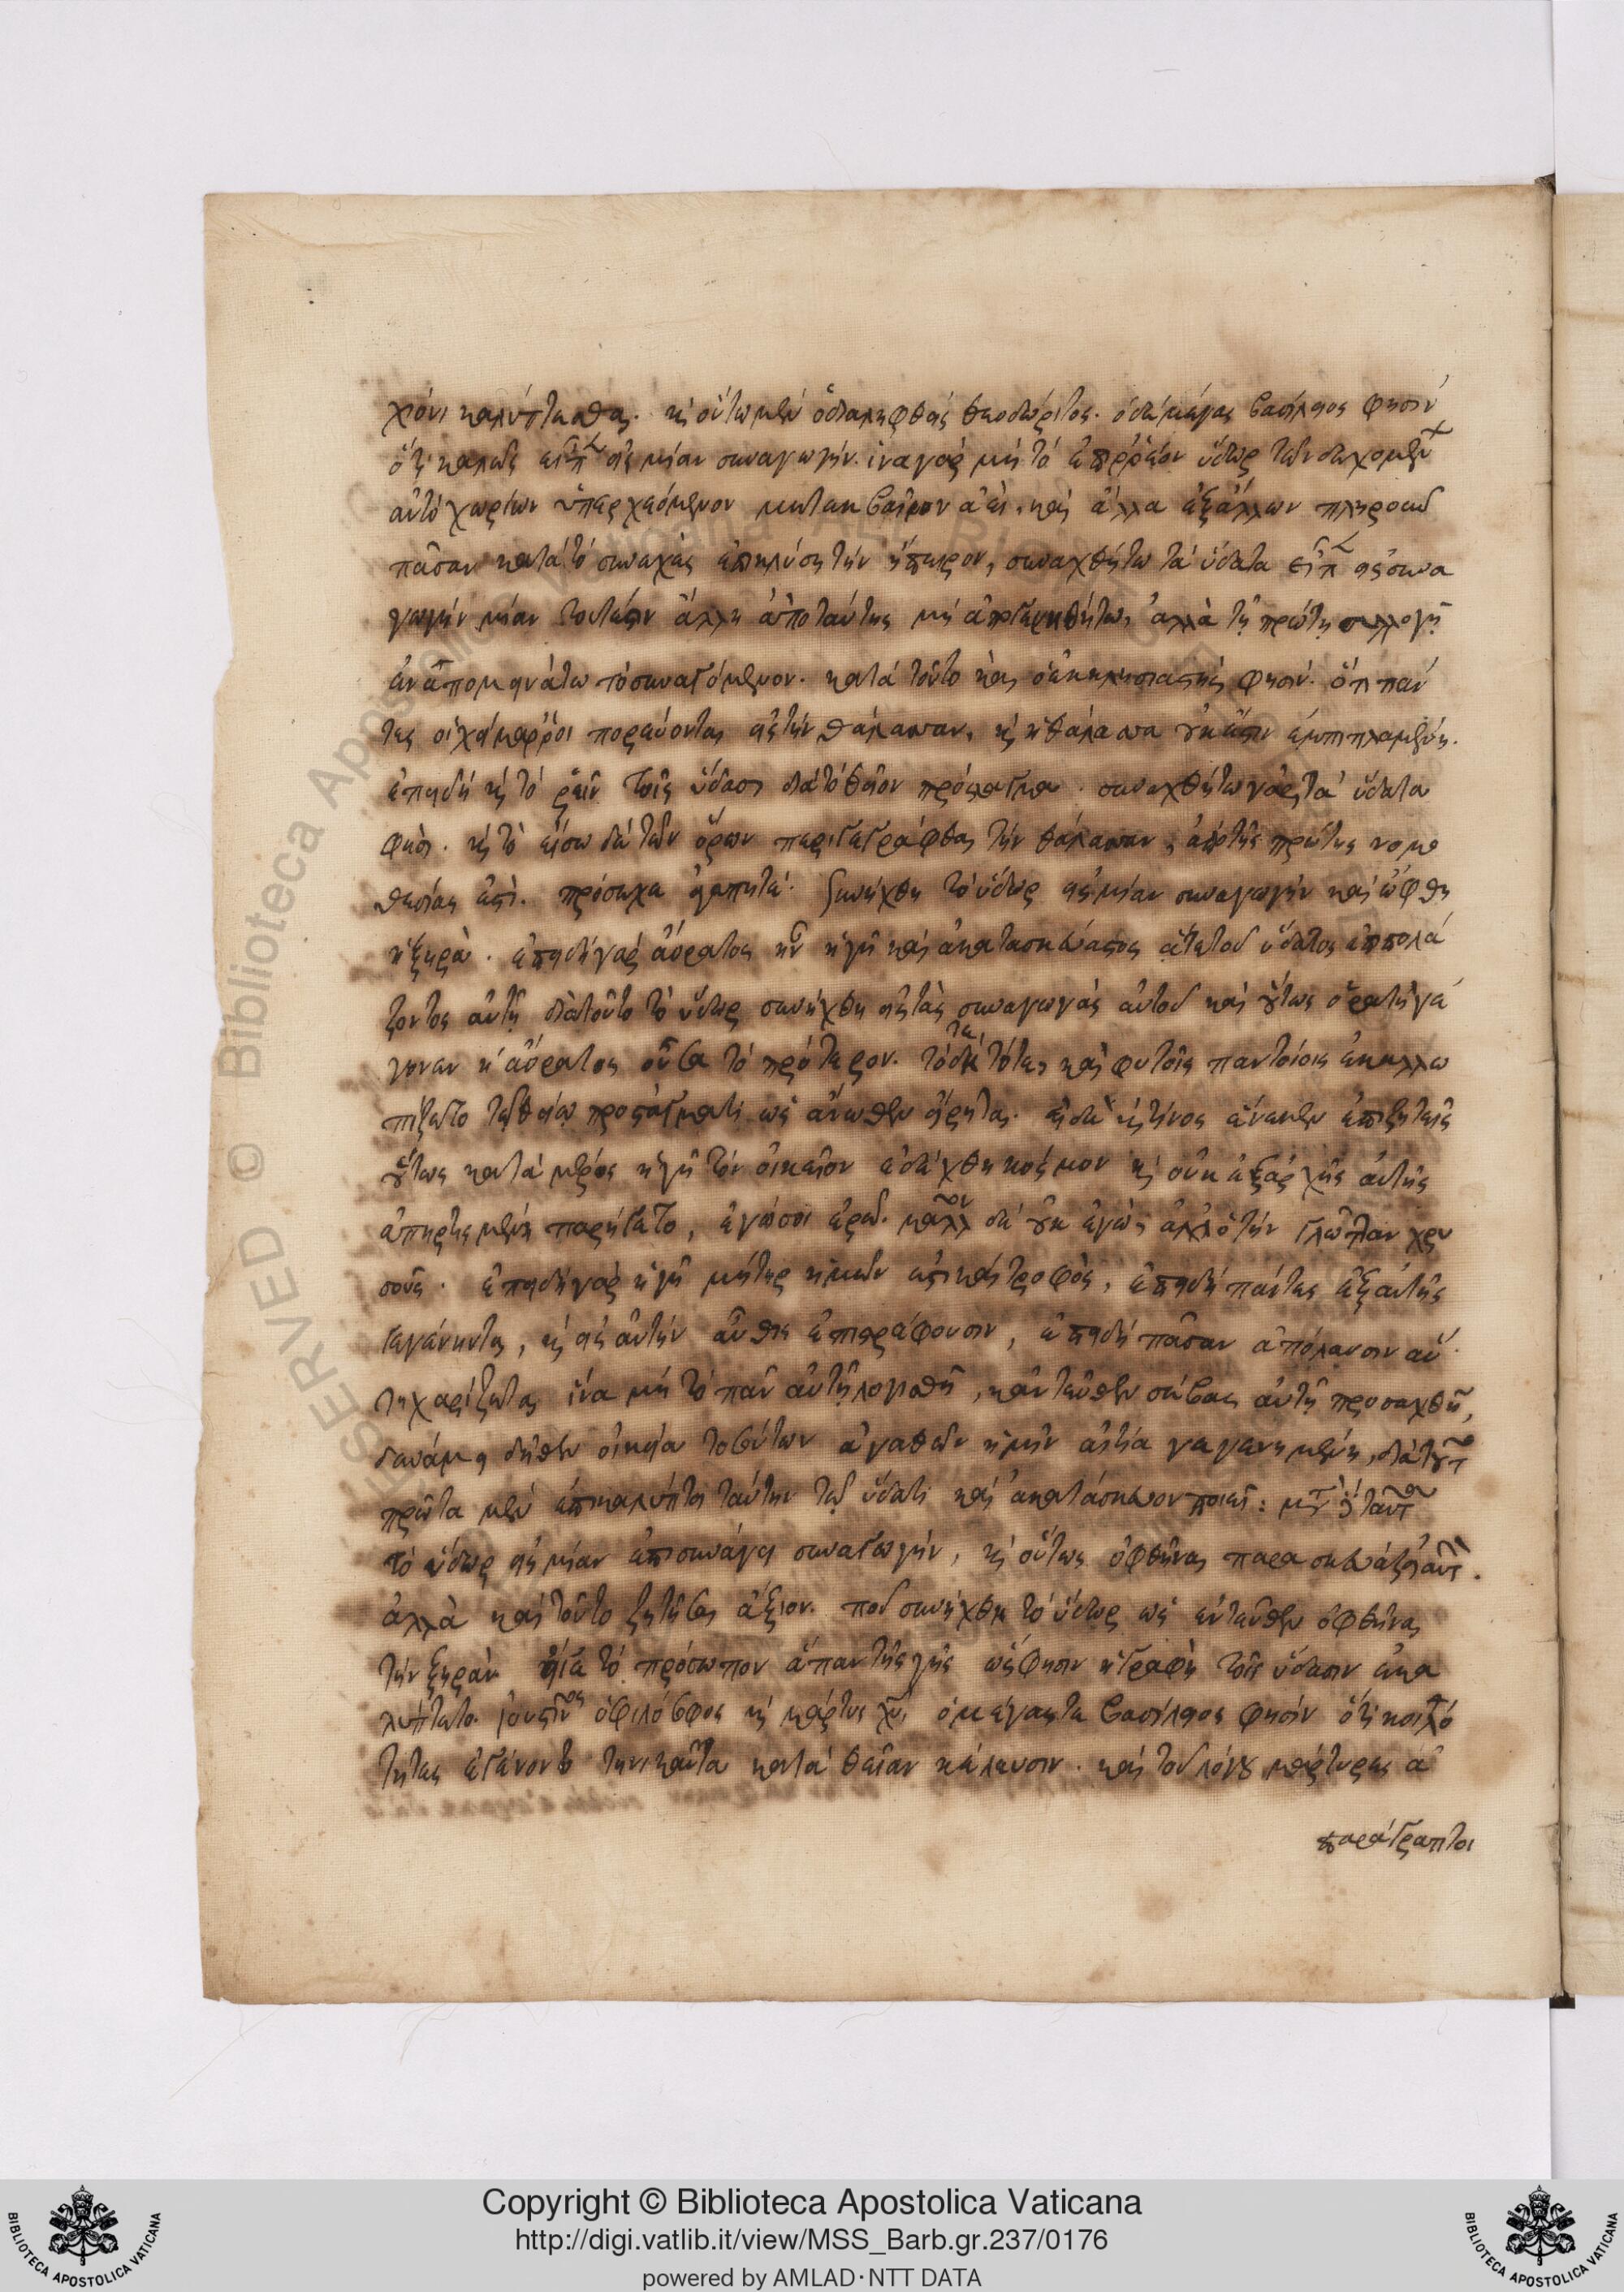 χιόνι καλύπτεσθαι. καὶ οὕτω μὲν ὁ διαληφθεὶς θεοδώριτος. ὁ δὲ μέγας βασίλειος φησίν
ὅτι καλῶς εἶπεν εἰς μίαν συναγωγήν. ἵνα γὰρ μὴ τὸ ἐπιρρέον ὕδωρ τῶν δεχομένων
αὐτὸ χωρίων ὑπερχεόμενον μετεκβαῖνον ἀεὶ, καὶ ἄλλα ἐξ ἄλλων πληροῦν
πᾶσαν κατὰ τὸ συνεχὲς ἐπικλύσῃ τὴν ἤπειρον, συναχθήτω τὰ ὕδατα εἶπεν εἰς συνα
γωγὴν μίαν τουτέστιν ἄλλη ἀπὸ ταύτης μὴ ἀπο θήτω, ἀλλὰ τῇ πρώτῃ συλλογῇ
ἐναπομεινάτω τὸ συναγόμενον. κατὰ τοῦτο καὶ ὁ ἐκκλησιαστής φησιν. ὅτι πάν
τες οἱ χείμαρροι πορεύονται εἰς τὴν θάλασσαν, καὶ ἡ θάλασσα οὐκ ἔστιν ἐμπιπλαμένη.
ἐπειδὴ καὶ τὸ ῥεῖν τοῖς ὕδασι διὰ τὸ θεῖον πρόσταγμα. συναχθήτω γὰρ τὰ ὕδατα
φησί. καὶ τὸ εἴσω δὲ τῶν ὅρων περιγεγράφθαι τὴν θάλασσαν, ἀπὸ τῆς πρώτης νομο
θεσίας ἐστί. πρόσεχε ἀγαπητέ. συνήχθη τὸ ὕδωρ εἰς μίαν συναγωγὴν καὶ ὤφθη
ἡ ξηρά. ἐπειδὴ γὰρ ἀόρατος ἦν ἡ γῆ καὶ ἀκατασκεύαστος ἅτε τοῦ ὕδατος ἐπιπολά
ζοντος αὐτῇ διὰ τοῦτο τὸ ὕδωρ συνήχθη εἰς τὰς συναγωγὰς αὐτοῦ καὶ οὕτως ὁρατὴ γέ
γονεν ἡ ἀόρατος οὖσα τὸ πρότερον. τὸ δὲ τότε, καὶ φυτοῖς παντοίοις ἐκαλλω
πίζετο τῷ θείῳ προστάγματι ὡς ἄνωθεν εἴρηται. εἰ δὲ καὶ τίνος ἕνεκεν ἐπιζητεῖς
οὕτως κατὰ μέρος ἡ γῆ τὸν οἰκεῖον ἐδέχθη κόσμον καὶ οὐκ ἐξ ἀρχῆς αὐτῆς
ἀπηρτισμένη παρήγετο, ἐγώ σοι ἐρῶ. μᾶλλον δὲ οὐκ ἐγὼ, ἀλλ' ὁ τὴν γλῶτταν χρυ
σοῦς. ἐπειδὴ γὰρ ἡ γῆ μήτηρ ἡμῶν ἐστι καὶ τροφὸς, ἐπειδὴ πάντες ἐξ αὐτῆς
γεγένηνται, καὶ εἰς αὐτὴν αὖθις ἐπιστρέφουσιν, ἐπειδὴ πᾶσαν ἀπόλαυσιν αὕ
τη χαρίζεται, ἵνα μὴ τὸ πᾶν αὐτῇ λογισθῇ, κἀντεῦθεν σέβας αὐτῇ προσαχθῇ,
δυνάμει δῆθεν οἰκεία τοσούτων ἀγαθῶν ἡμῖν αἰτία γεγενημένη, διὰ τοῦτο
πρῶτα μὲν ἐπικαλύπτει ταύτην τῷ ὕδατι καὶ ἀκατάσκευον ποιεῖ: μετὰ δὲ ταῦτα
τὸ ὕδωρ εἰς μίαν ἐπισυνάγει συναγωγήν, καὶ οὕτως ὀφθῆναι παρασκευάζει αὐτήν.
ἀλλὰ καὶ τοῦτο ζητῆσαι ἄξιον. ποῦ συνήχθη τὸ ὕδωρ ὡς ἐντεῦθεν ὀφθῆναι
τὴν ξηράν εἴγε τὸ πρόσωπον ἅπαν τῆς γῆς ὡς φησιν ἡ γραφὴ τοῖς ὕδασιν ἐκα
λύπτετο. ἰουστῖνος ὁ φιλόσοφος καὶ μάρτυς χυ, ὁ μέγας τε βασίλειος φησὶν ὅτι κοιλό
τητες ἐγένοντο τηνικαῦτα κατὰ θείαν κέλευσιν. καὶ τοῦ λόγου μάρτυρες ἀ
παράγραπτοι